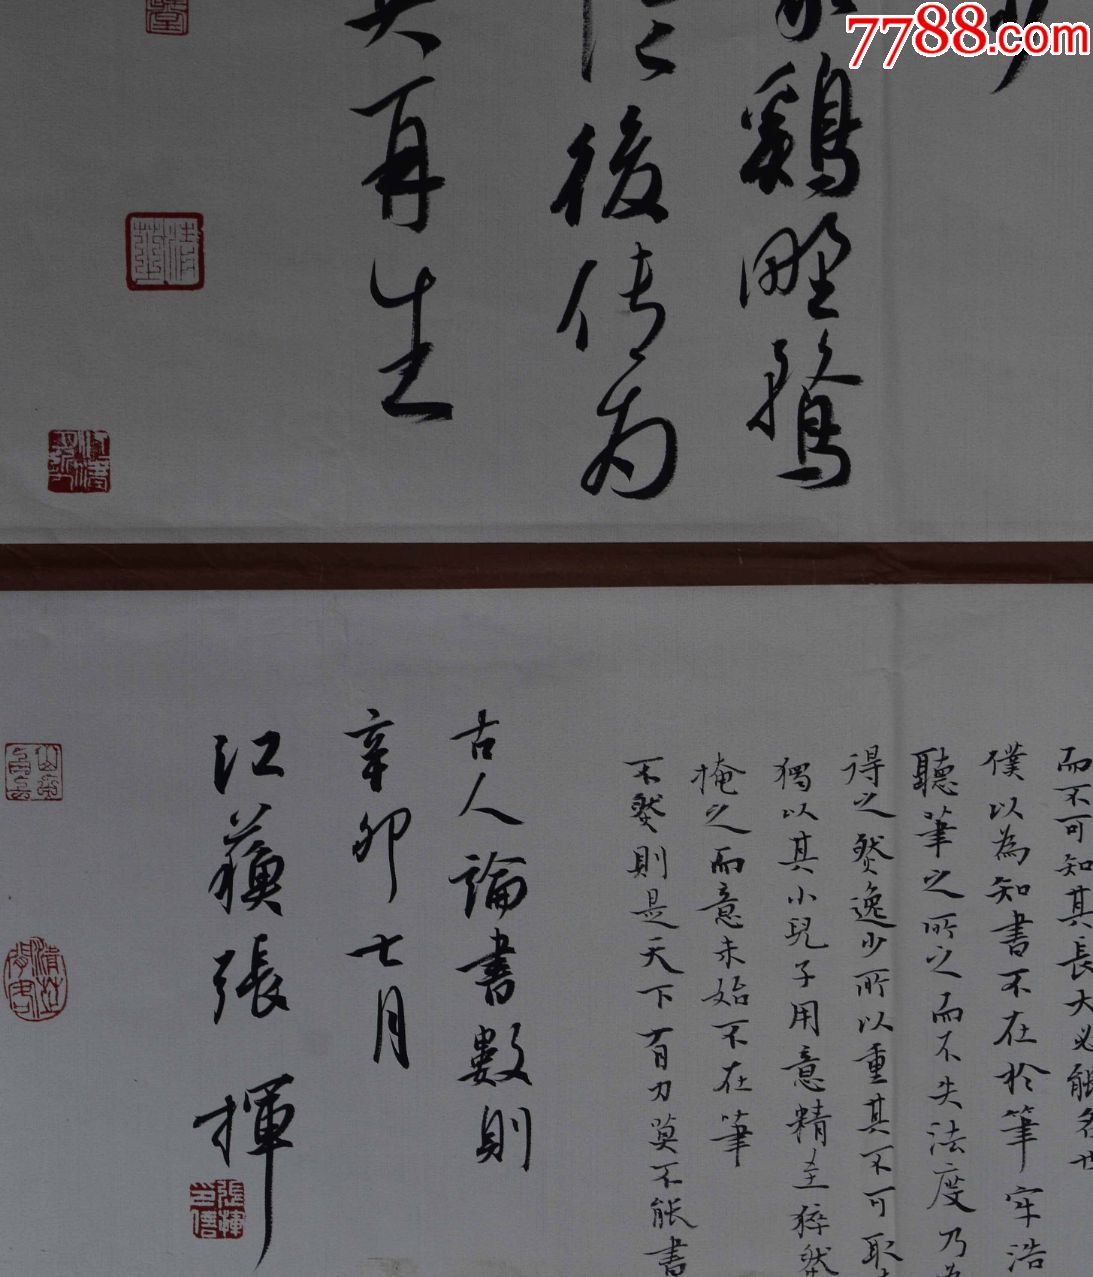 7788.com
鷄野鶩
後传为
再生
而不可知其長大必能名世
僕以為知書不在於筆牢浩
聽筆之所之而不失法度乃
得之然逸少所以重其不可取
獨以其小兒子用意精至猝然
掩之而意未始不在筆
不然則是天下有力莫不能書
古人論書數則
辛卯七月
江蘇張揮
張揮